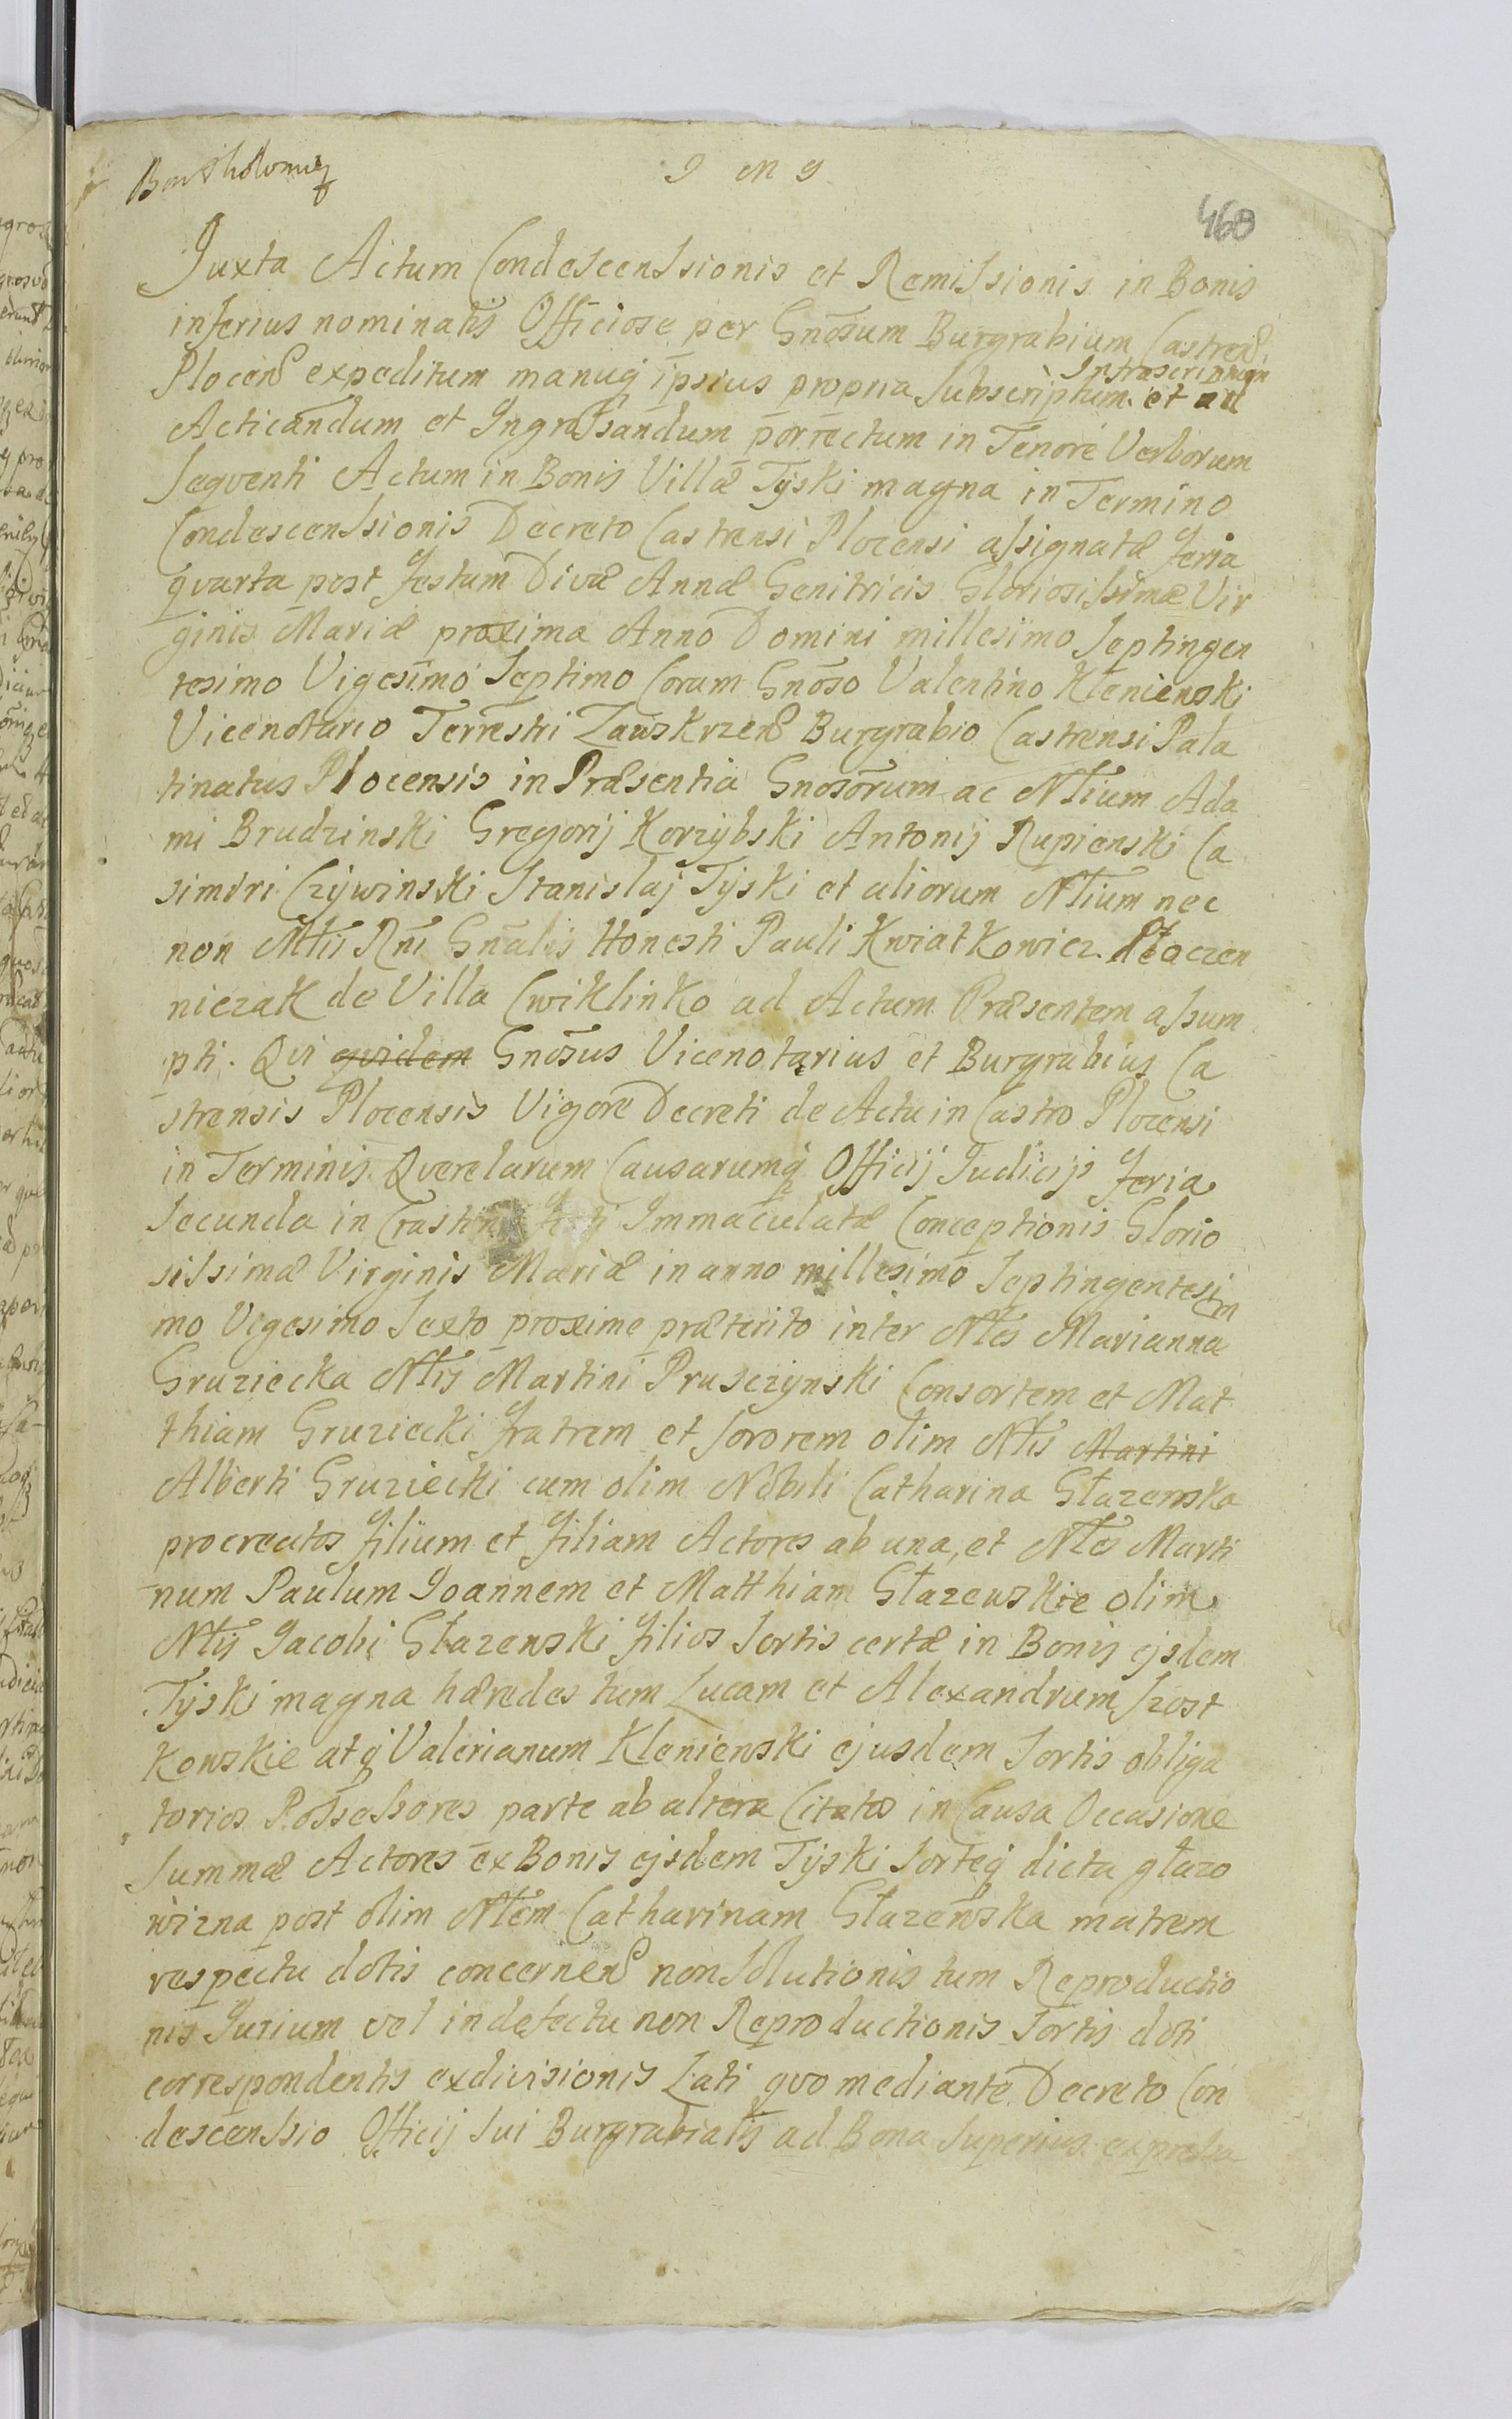 Bartholomęi
J M J
468
Juxta Actum Condescenssionis et Remissionis in Bonis
inferius nominatis Officiose per Gnosum Burgrabium Castren.
Infrascriptum
Plocen expeditum manuq ipsius propria subscriptum et ad
Acticandum et Ingrossandum porrectum in Tenore Verborum
seqventi Actum in Bonis Villæ Tyski magna in Termino
Condescenssionis Decreto Castrensi Plocensi assignatæ feria
qvarta post festum Divæ Annæ Genitricis Gloriosissimæ Vir
ginis Mariæ proxima Anno Domini millesimo septingen
tesimo Vigesimo Septimo Coram Gnoso Valentino Klenienski
Vicenotario Terrestri Zawskrzen Burgrabio Castrensi Pala
tinatus Plocensis in Præsentia Gnosorum ac Nlium Ada
mi Brudzinski Gregorij Korzybski Antonij Rupienski Ca
simiri Czywinski Stanislaj Tyski et aliorum Nlium nec
non Mtis Rni Gnalis Honesti Pauli Kwiatkowicz Ptoczen
niczak de Villa Cwiklinko ad Actum Præsentem assum
pti. Qvi qvidem Gnosus Vicenotarius et Burgrabius Ca
strensis Plocensis Vigore Decreti de Actu in Castro Plocensi
in Terminis Qverelarum Causarumq Officij Judicijs feria
secunda in Crastino festi Immaculatæ Conceptionis Glorio
sissimæ Virginis Mariæ in anno millesimo Septingentesi
mo Vigesimo Sexto proxime præterito inter Nles Mariannam
Gruziecka Nlis Martini Prusczynski Consortem et Mat
thiam Gruziecki fratrem et sororem olim Nlis Martini
Alberti Gruziecki cum olim Nobili Catharina Głazewska
procreatos filium et filiam Actores ab una, et Nles Marti
num Paulum Joannem et Matthiam Głazewskie olim
Nlis Jacobi Głazewski filios sortis certæ in Bonis ejsdem
Tyski magna hæredes tum Lucam et Alexandrum Szost
kowskie atq Valerianum Klenienski ejusdem sortis obliga
torios Possessores parte ab altera Citatos in Causa Occasione
summæ Actores ex Bonis ejsdem Tyski sorteq dicta głazo
wizna post olim Nlem Catharinam Głazewska matrem
respectu dotis concernen non solutionis tum Reproductio
nis Jurium vel in defectu non Reproductionis sortis doti
correspondentis exdivisionis Lati qvo mediante Decreto Con
descenssio Officij sui Burgrabialis ad Bona superius expressa